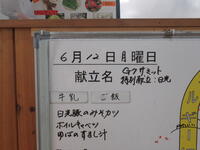 6月12日月曜日
献立名 G7サミット
特別献立:日光
牛乳 ご飯
日光豚のみそカツ
ボイルキャベツ
ゆばのすまし汁
ルギー